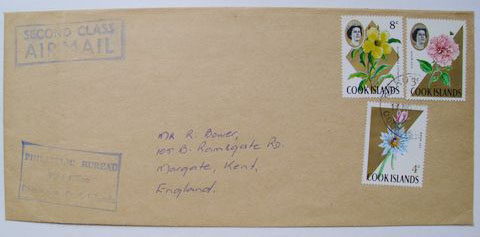 SECOND CLASS
AIR MAIL
8c
COOK ISLANDS
3c
COOK ISLANDS
4c
COOK ISLANDS
Mr R. Bower,
105 B. Ramsgate Rd.
Margate, Kent,
England.
PHILATELIC BUREAU